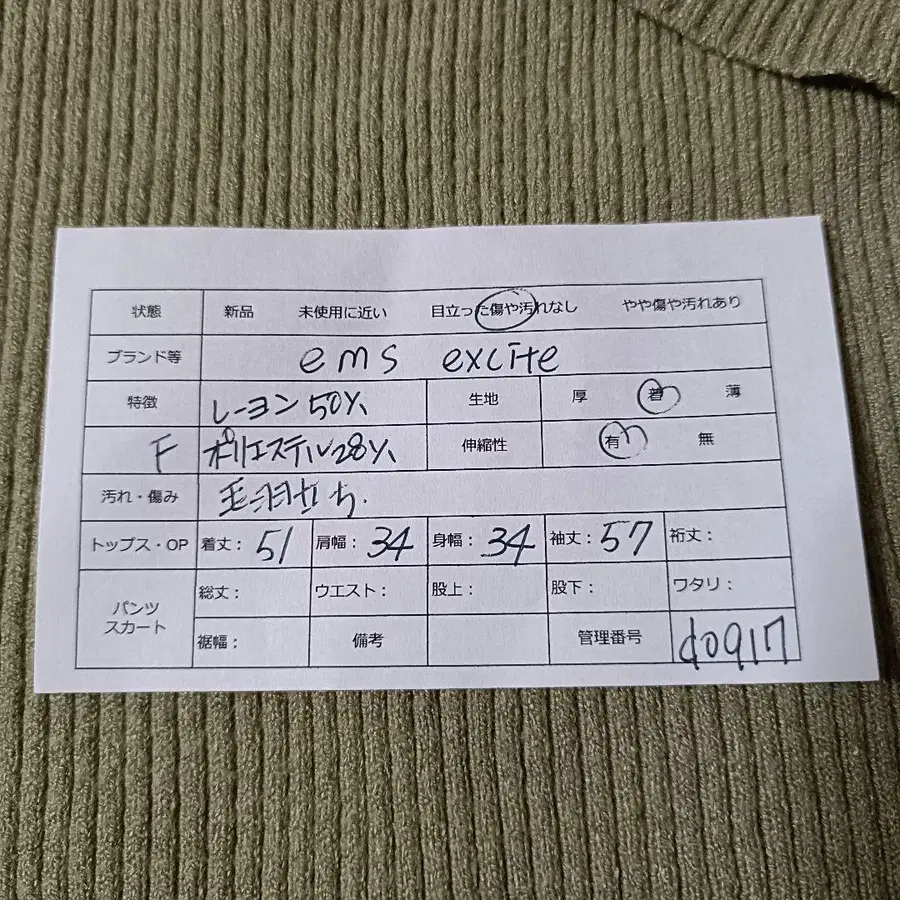 状態 新品 未使用に近い 目立った傷や汚れなし やや傷や汚れあり
ブランド等 ems excite
特徴 レーヨン50% 生地 厚 普 薄
F ポリエステル28% 伸縮性 有 無
汚れ・傷み 毛羽立ち.
トップス・OP 着丈: 51 肩幅: 34 身幅: 34 袖丈: 57 裄丈:
パンツ スカート 総丈: ウエスト: 股上: 股下: ワタリ:
裾幅: 備考 管理番号 d0917